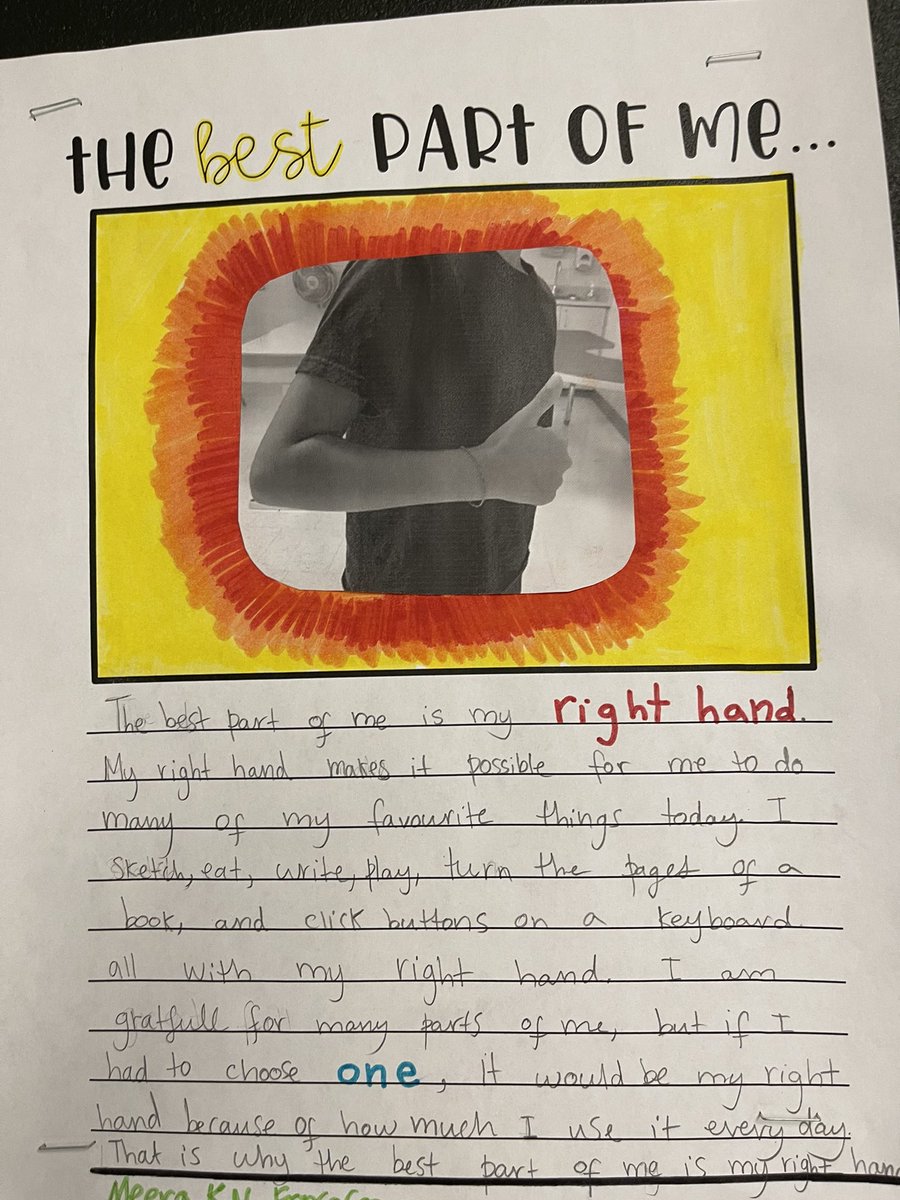 THE best PART OF Me...
The best part of me is my right hand.
My right hand makes it possible for me to do
many of my favourite things today. I
sketch, eat, write, play, turn the pages of a
book, and click buttons on a keyboard
all with my right hand. I am
gratfull for many parts of me, but if I
had to choose one, it would be my right
hand because of how much I use it every day.
That is why the best part of me is my right hand
Meera K.N.